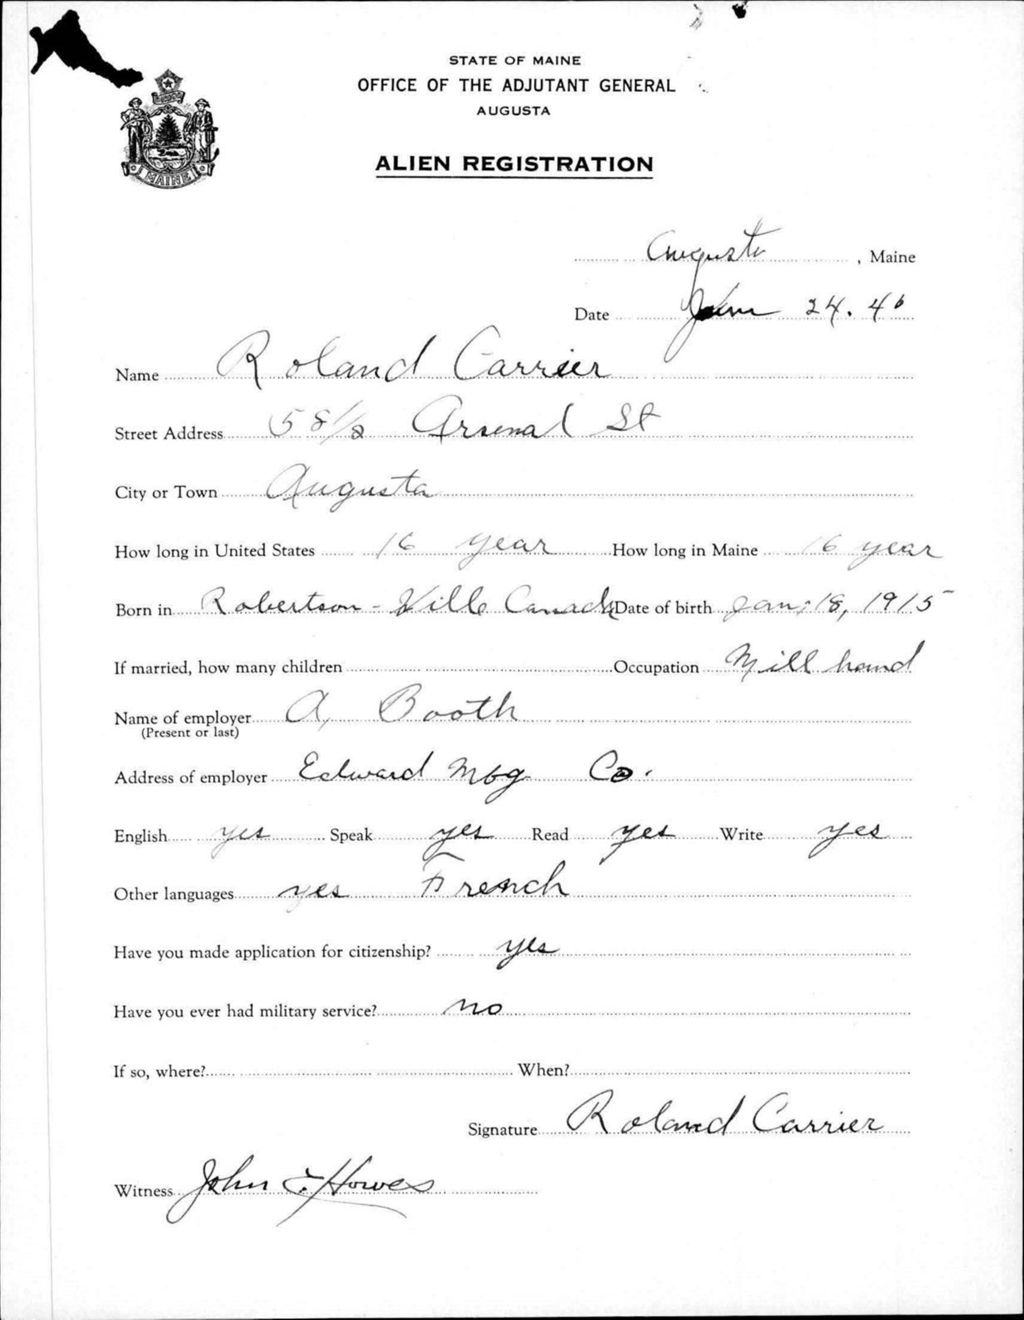 STATE OF MAINE
OFFICE OF THE ADJUTANT GENERAL
AUGUSTA
MAINE
ALIEN REGISTRATION
Augusta, Maine
Date 24. 40
Name Roland Carrier
Street Address 58 1/2 Arsenal St
City or Town Augusta
How long in United States 16 year How long in Maine 16 year
Born in Robertson-Ville Canada Date of birth Jan, 18, 1915
If married, how many children Occupation Mill hand
Name of employer A, Booth
(Present or last)
Address of employer Edward Mfg Co.
English yes Speak yes Read yes Write yes
Other languages yes French
Have you made application for citizenship? yes
Have you ever had military service? no
If so, where? When?
Signature Roland Carrier
Witness John E. Howes